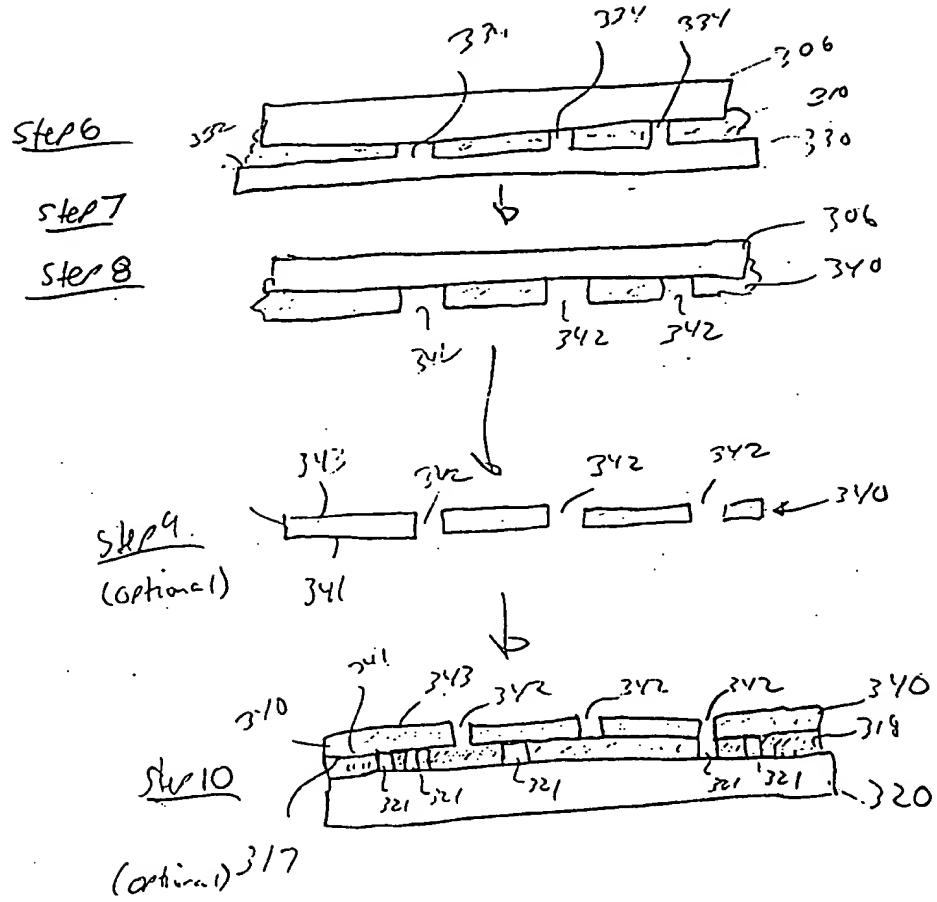 334
334
334
306
310
Step 6
332
330
Step 7
306
Step 8
340
342
342
342
343
342
342
342
340
Step 9.
(optional)
341
341
343
342
342
342
340
310
318
Step 10
321
321
321
321
321
320
(optional)
317